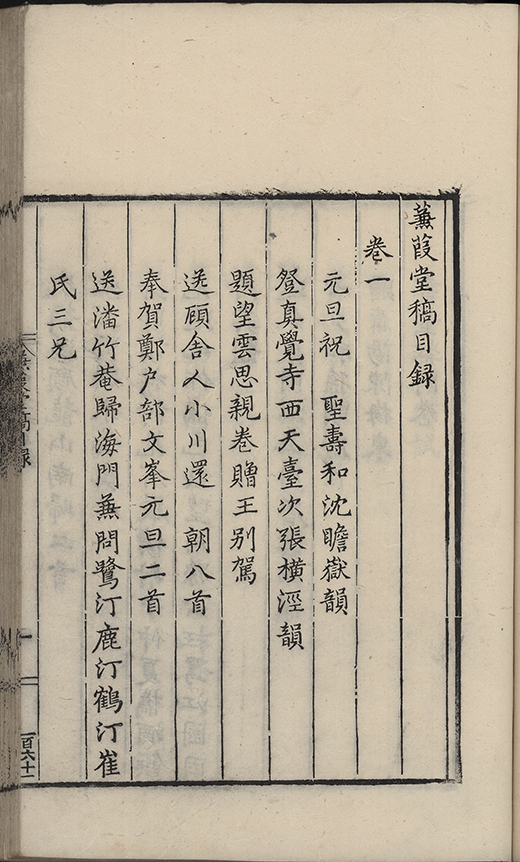 蒹葭堂稿目録
卷一
元旦祝　聖壽和沈瞻嶽韻
登真覺寺西天臺次張橫涇韻
題望雲思親卷贈王别駕
送顧舍人小川還　朝八首
奉賀鄭户部文峯元旦二首
送潘竹菴歸海門兼問鷺汀鹿汀鶴汀崔
氏三兄
一
一百六十二